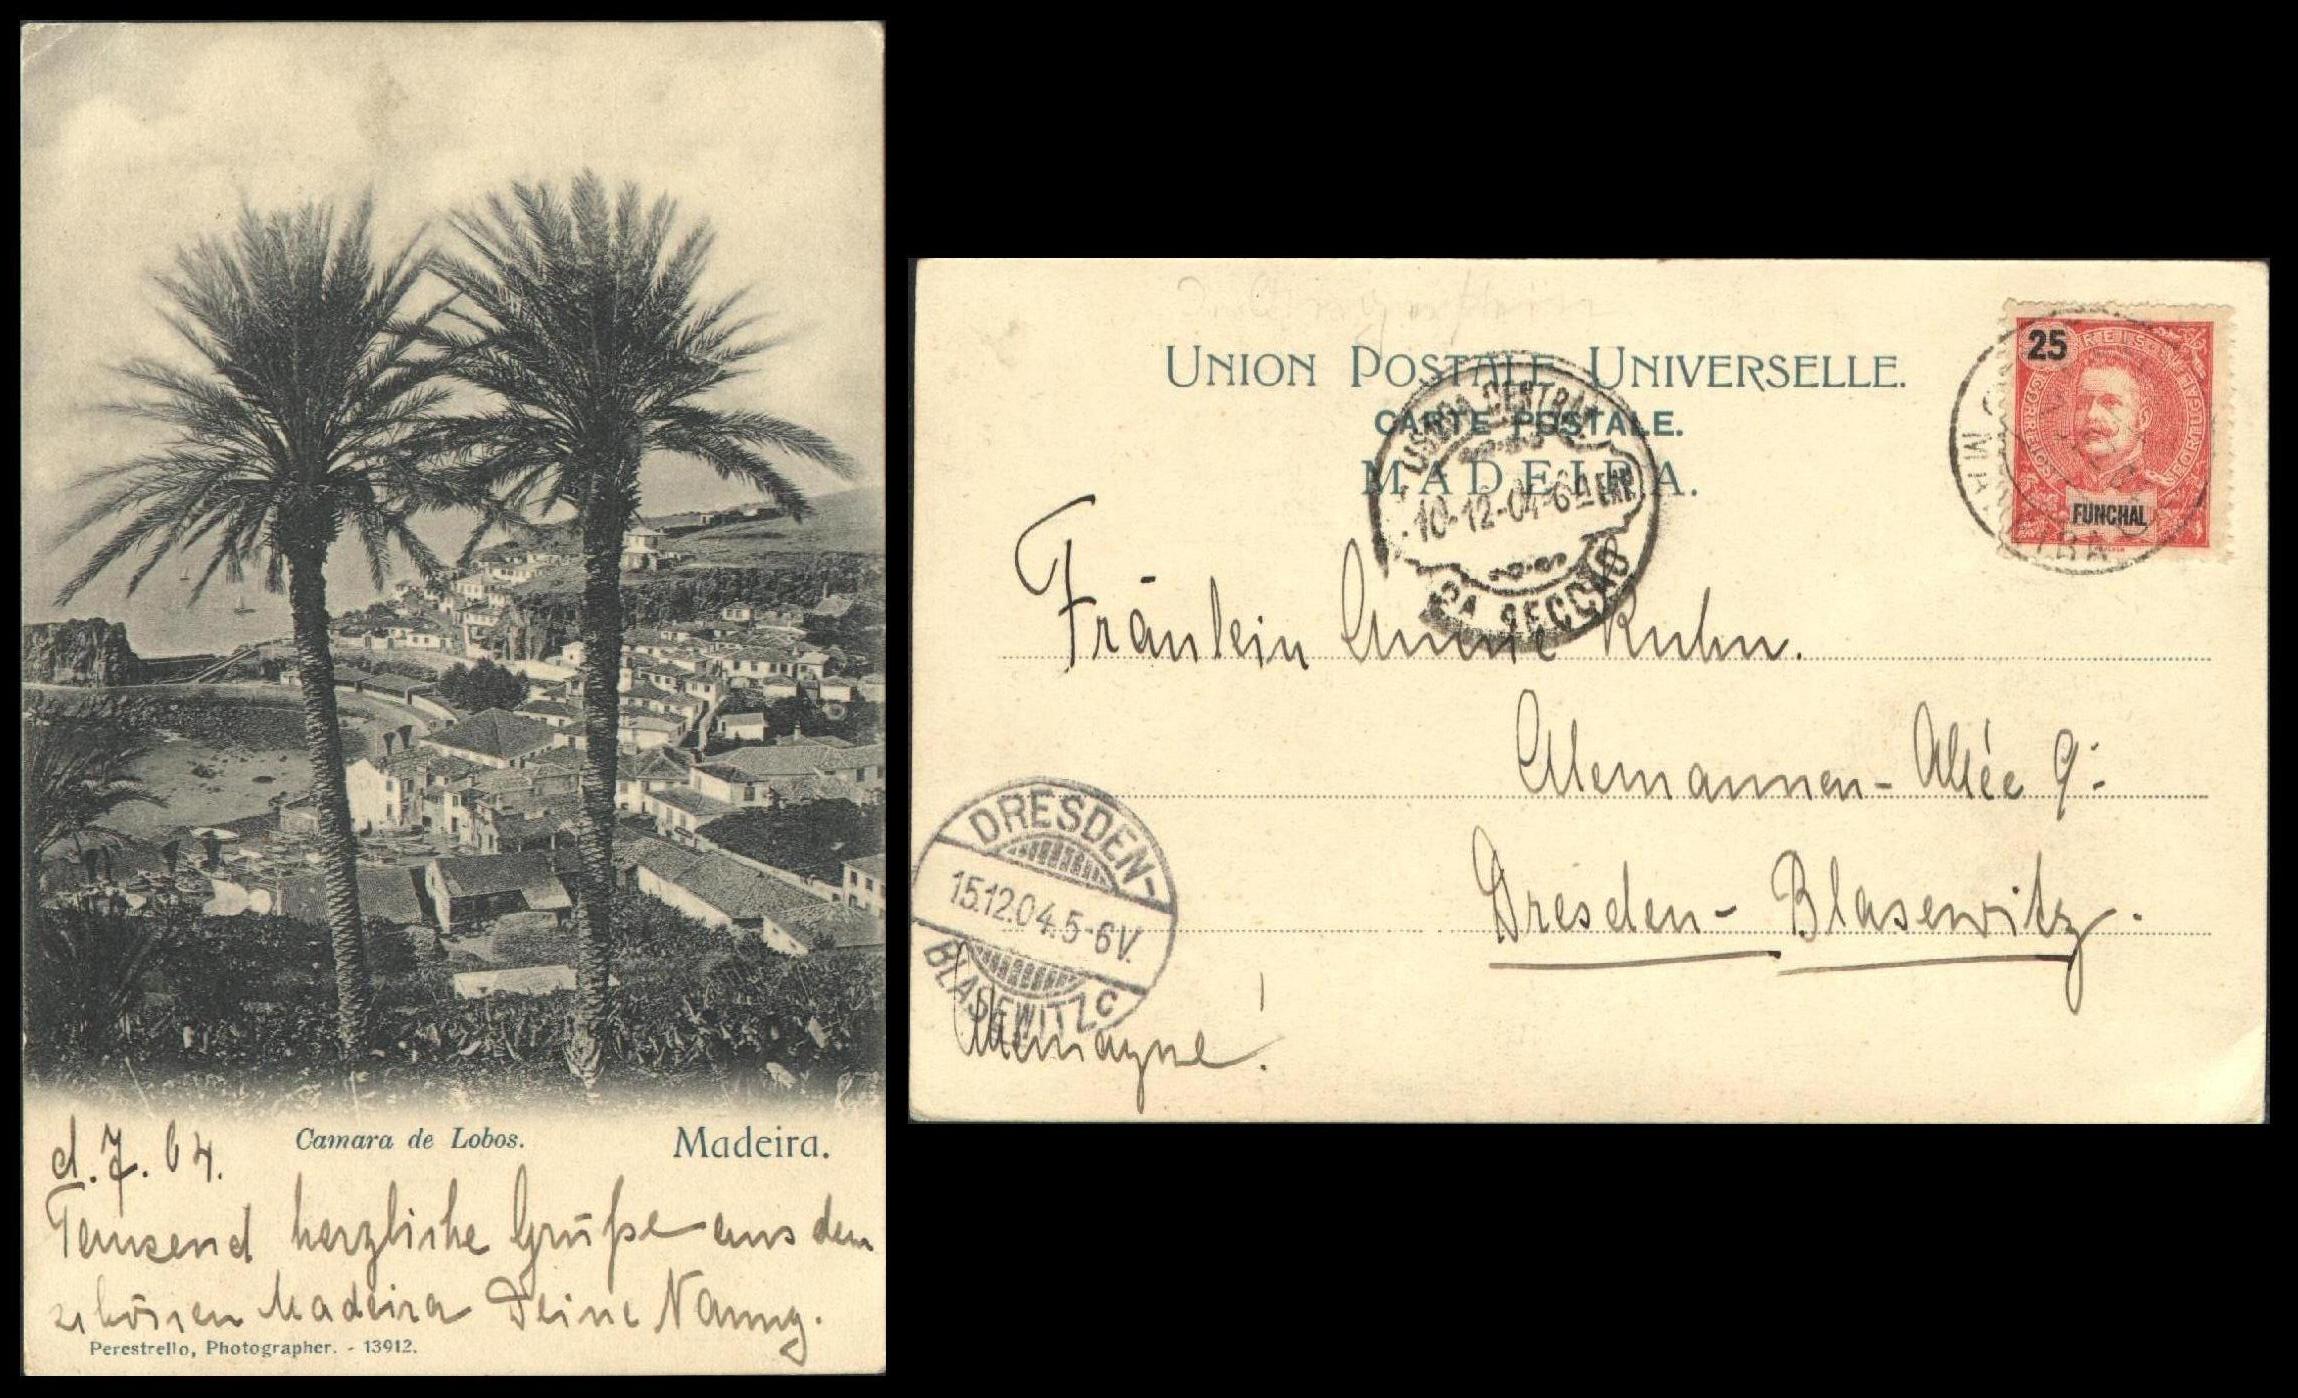 Camara de Lobos. Madeira.
d. 7. 04.
Tausend herzliche Grüße aus dem
schönen Madeira Deine Nanny.
Perestrello, Photographer. - 13912.
UNION POSTALE UNIVERSELLE.
CARTE POSTALE.
MADEIRA.
25
CORREIOS
FUNCHAL
LISBOA CENTRAL
10-12-04-6
SECCÃO
Fräulein Anne Kuhn.
Alemannen-Allée 9.
Dresden-Blasewitz.
Allemagne!
DRESDEN-
15.12.04.5-6V.
BLASEWITZ C